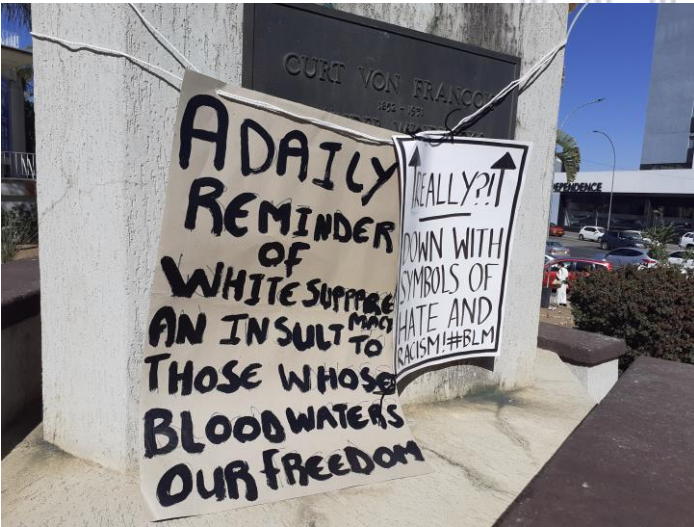 CURT VON FRANCOIS
1852 - 1931
A DAILY
REMINDER
OF
WHITE SUPPPRE
MACY
AN INSULT TO
THOSE WHOSE
BLOOD WATERS
OUR FREEDOM
REALLY?!
DOWN WITH
SYMBOLS OF
HATE AND
RACISM! #BLM
EPENDENCE